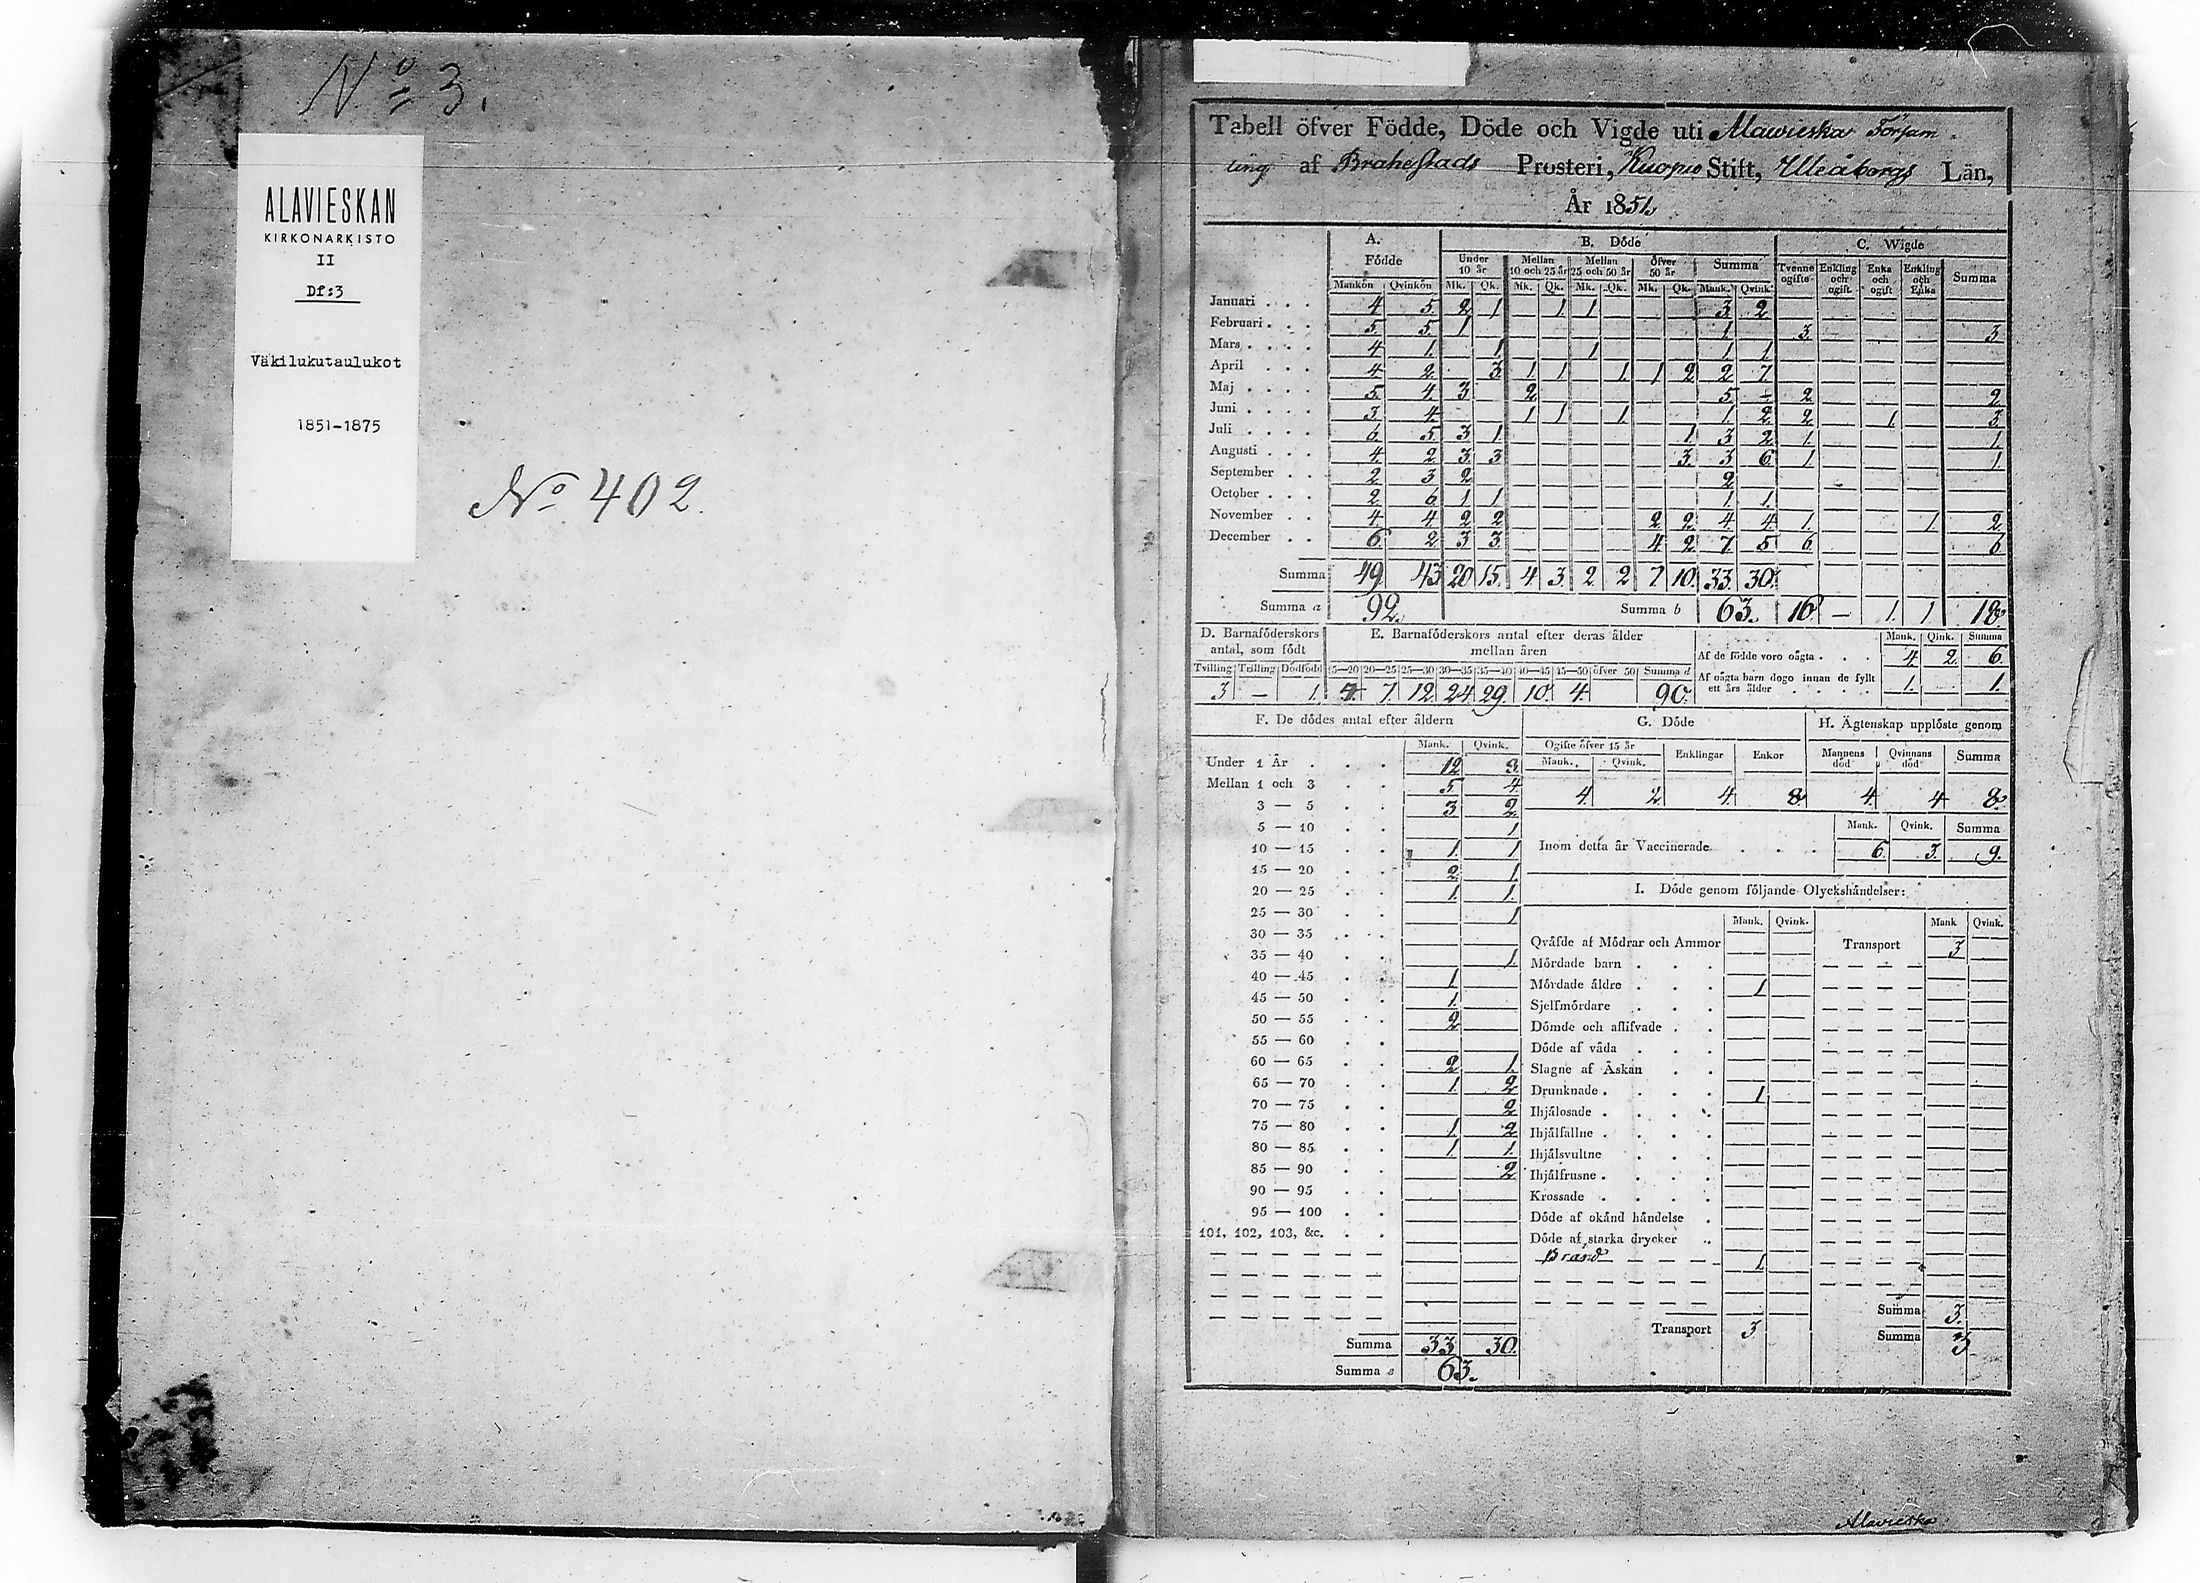 No 3.
ALAVIESKAN
KIRKONARKISTO
II
Df:3
Väkilukutaulukot
1851-1875
No 402.
Tabell öfver Födde, Döde och Vigde uti Alawieska Försam-
ling af Brahestads Prosteri, Kuopio Stift, Uleåborgs Län,
År 1851.
A. Födde B. Döde C. Wigde
Under 10 år Mellan 10 och 25 år Mellan 25 och 50 år Öfver 50 år Summa Tvenne ogifte Enkling och ogift. Enka och ogift Enkling och Enka Summa
Mankön Qvinkön Mk. Qk. Mk. Qk. Mk. Qk. Mk. Qk. Mank. Qvink.
Januari . . . 4 5. 2 1 1. 1 3 2
Februari . . . 5. 5. 1 1 3. 3
Mars . . . . 4 1. 1 1 1 1.
April . . . 4. 2. 3. 1 1 1. 1 2 2 7
Maj . . . . 5. 4. 3 2 5 - 2 2
Juni . . . . 3 4. 1 1 1. 1. 2 2 1. 3.
Juli . . . . 6. 5. 3 1 1. 3 2 1. 1.
Augusti . . . 4. 2 3. 3 3. 3 6 1. 1
September . . 2 3 2 2
October . . . 2 6 1 1 1 1.
November . . 4. 4 2 2 2 2 4. 4. 1. 1 2
December . . 6. 2 3 3. 4 2 7. 5 6. 6.
Summa 49 43 20 15. 4 3. 2 2 7 10. 33. 30.
Summa a 92. Summa b 63. 16. — 1. 1 18.
D. Barnaföderskors antal, som födt
Tvilling Trilling Dödfödd
3 — 1.
E. Barnaföderskors antal efter deras ålder mellan åren
15—20 20—25 25—30 30—35 35—40 40—45 45—50 öfver 50 Summa d
4. 7. 12. 24 29. 10. 4. 90.
Mank. Qink. Summa
Af de födde voro oägta . . . 4. 2. 6.
Af oägta barn dogo innan de fyllt
ett års ålder . . . . . 1. 1.
F. De dödes antal efter åldern
Mank. Qvink.
Under 1 År . . . 12 9.
Mellan 1 och 3 . . 5 4
3 — 5 . . 3 2
5 — 10 . . 1
10 — 15 . . 1. 1
15 — 20 . . 2. 1.
20 — 25 . . 1. 1.
25 — 30 . . 1
30 — 35 . .
35 — 40 . . 1.
40 — 45 . . 1
45 — 50 . . 1.
50 — 55 . . 2
55 — 60 . .
60 — 65 . . 2 1.
65 — 70 . . 1. 2
70 — 75 . . 2
75 — 80 . . 1. 2
80 — 85 . . 1 1.
85 — 90 . . 2
90 — 95 . .
95 — 100 . .
101, 102, 103, &c. . .
Summa 33 30.
Summa e 63.
G. Döde
Ogifte öfver 15 år Enklingar Enkor
Mank. Qvink.
4. 2 4. 8
H. Ägtenskap upplöste genom
Mannens död Qvinnans död Summa
4. 4 8.
Mank. Qvink. Summa
Inom detta år Vaccinerade . . . . 6. 3. 9.
I. Döde genom följande Olyckshändelser:
Mank. Qvink. Mank Qvink.
Qväfde af Mödrar och Ammor Transport 3
Mördade barn . . .
Mördade äldre . . . 1
Sjelfmördare . . .
Dömde och aflifvade . .
Döde af våda . . .
Slagne af Åskan . .
Drunknade . . . . 1
Ihjälosade . . . .
Ihjälfallne . . . .
Ihjälsvultne . . .
Ihjälfrusne . . . .
Krossade . . . .
Döde af okänd händelse .
Döde af starka drycker ..
Brand 1
Summa 3.
Transport 3 Summa 3
Alavieska